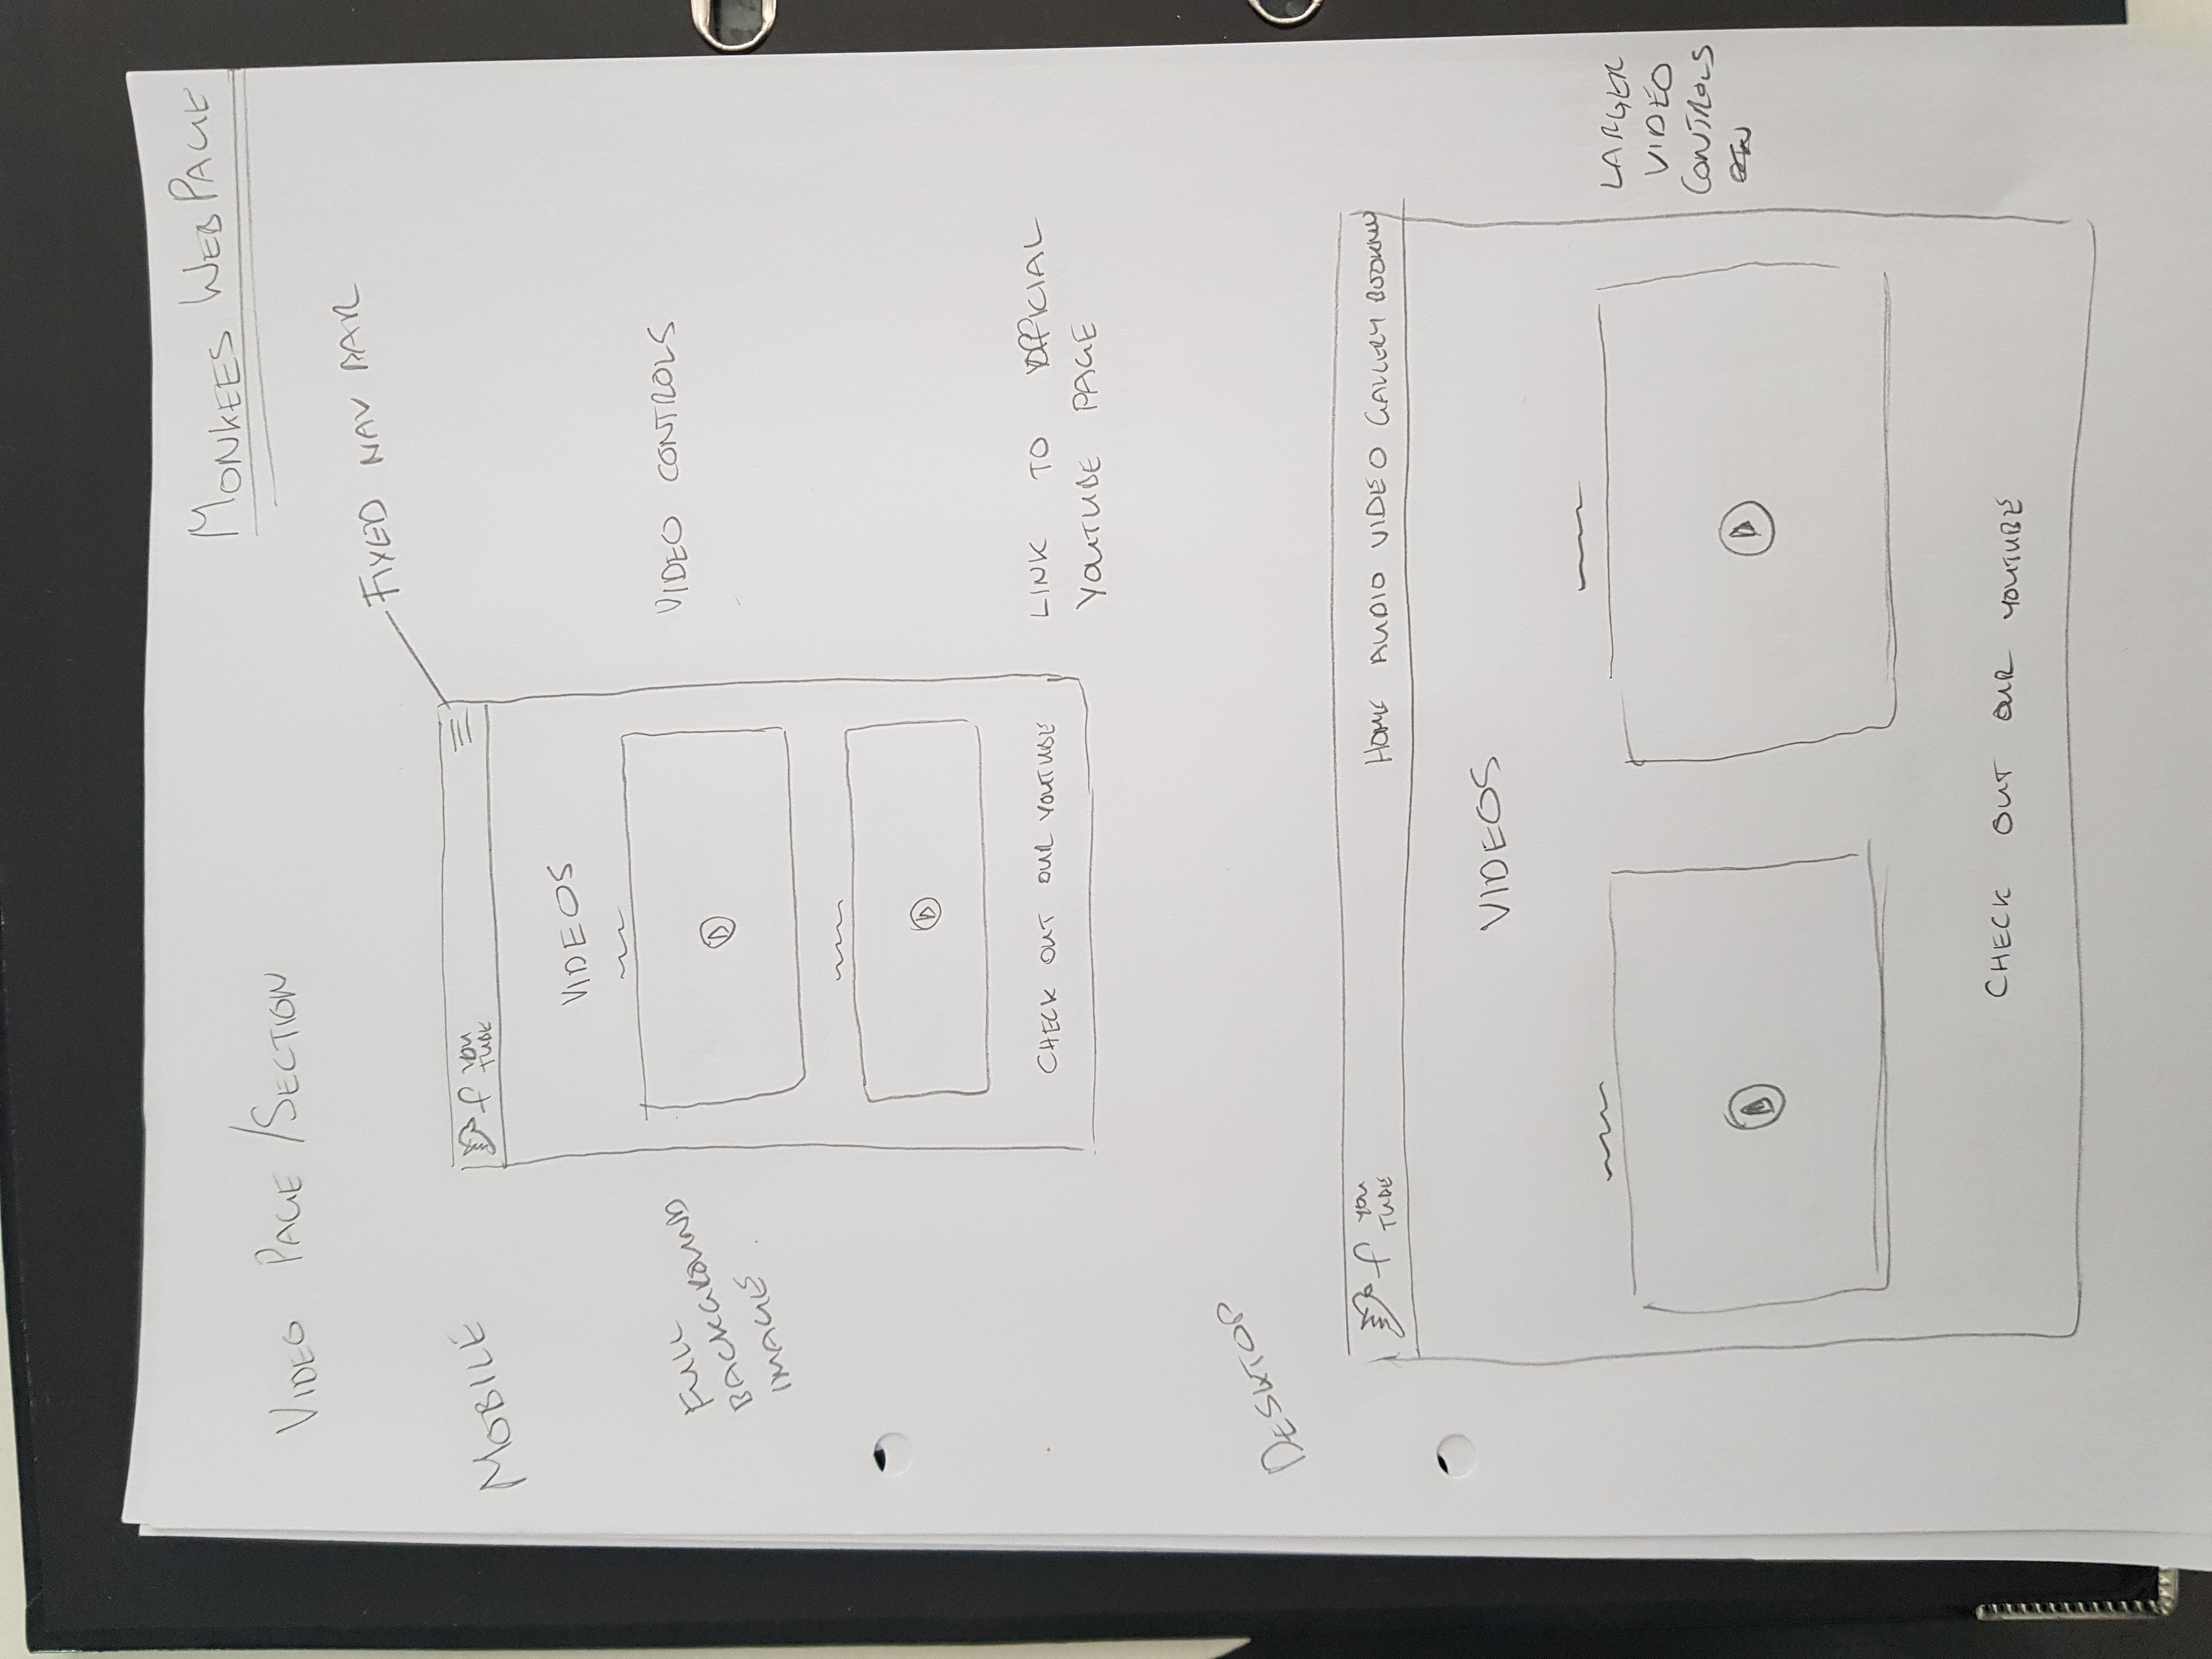 MONKEES WEBPAGE
VIDEO PAGE/SECTION
FIXED NAV BAR
MOBILE
f YOU
TUBE
VIDEOS
FULL
BACKGROUND
IMAGE
VIDEO CONTROLS
CHECK OUT OUR YOUTUBE
LINK TO OFFICIAL
YOUTUBE PAGE
DESKTOP
f YOU
TUBE
HOME AUDIO VIDEO GALLERY BOOKING
VIDEOS
LARGER
VIDEO
CONTROLS
CHECK OUT OUR YOUTUBE